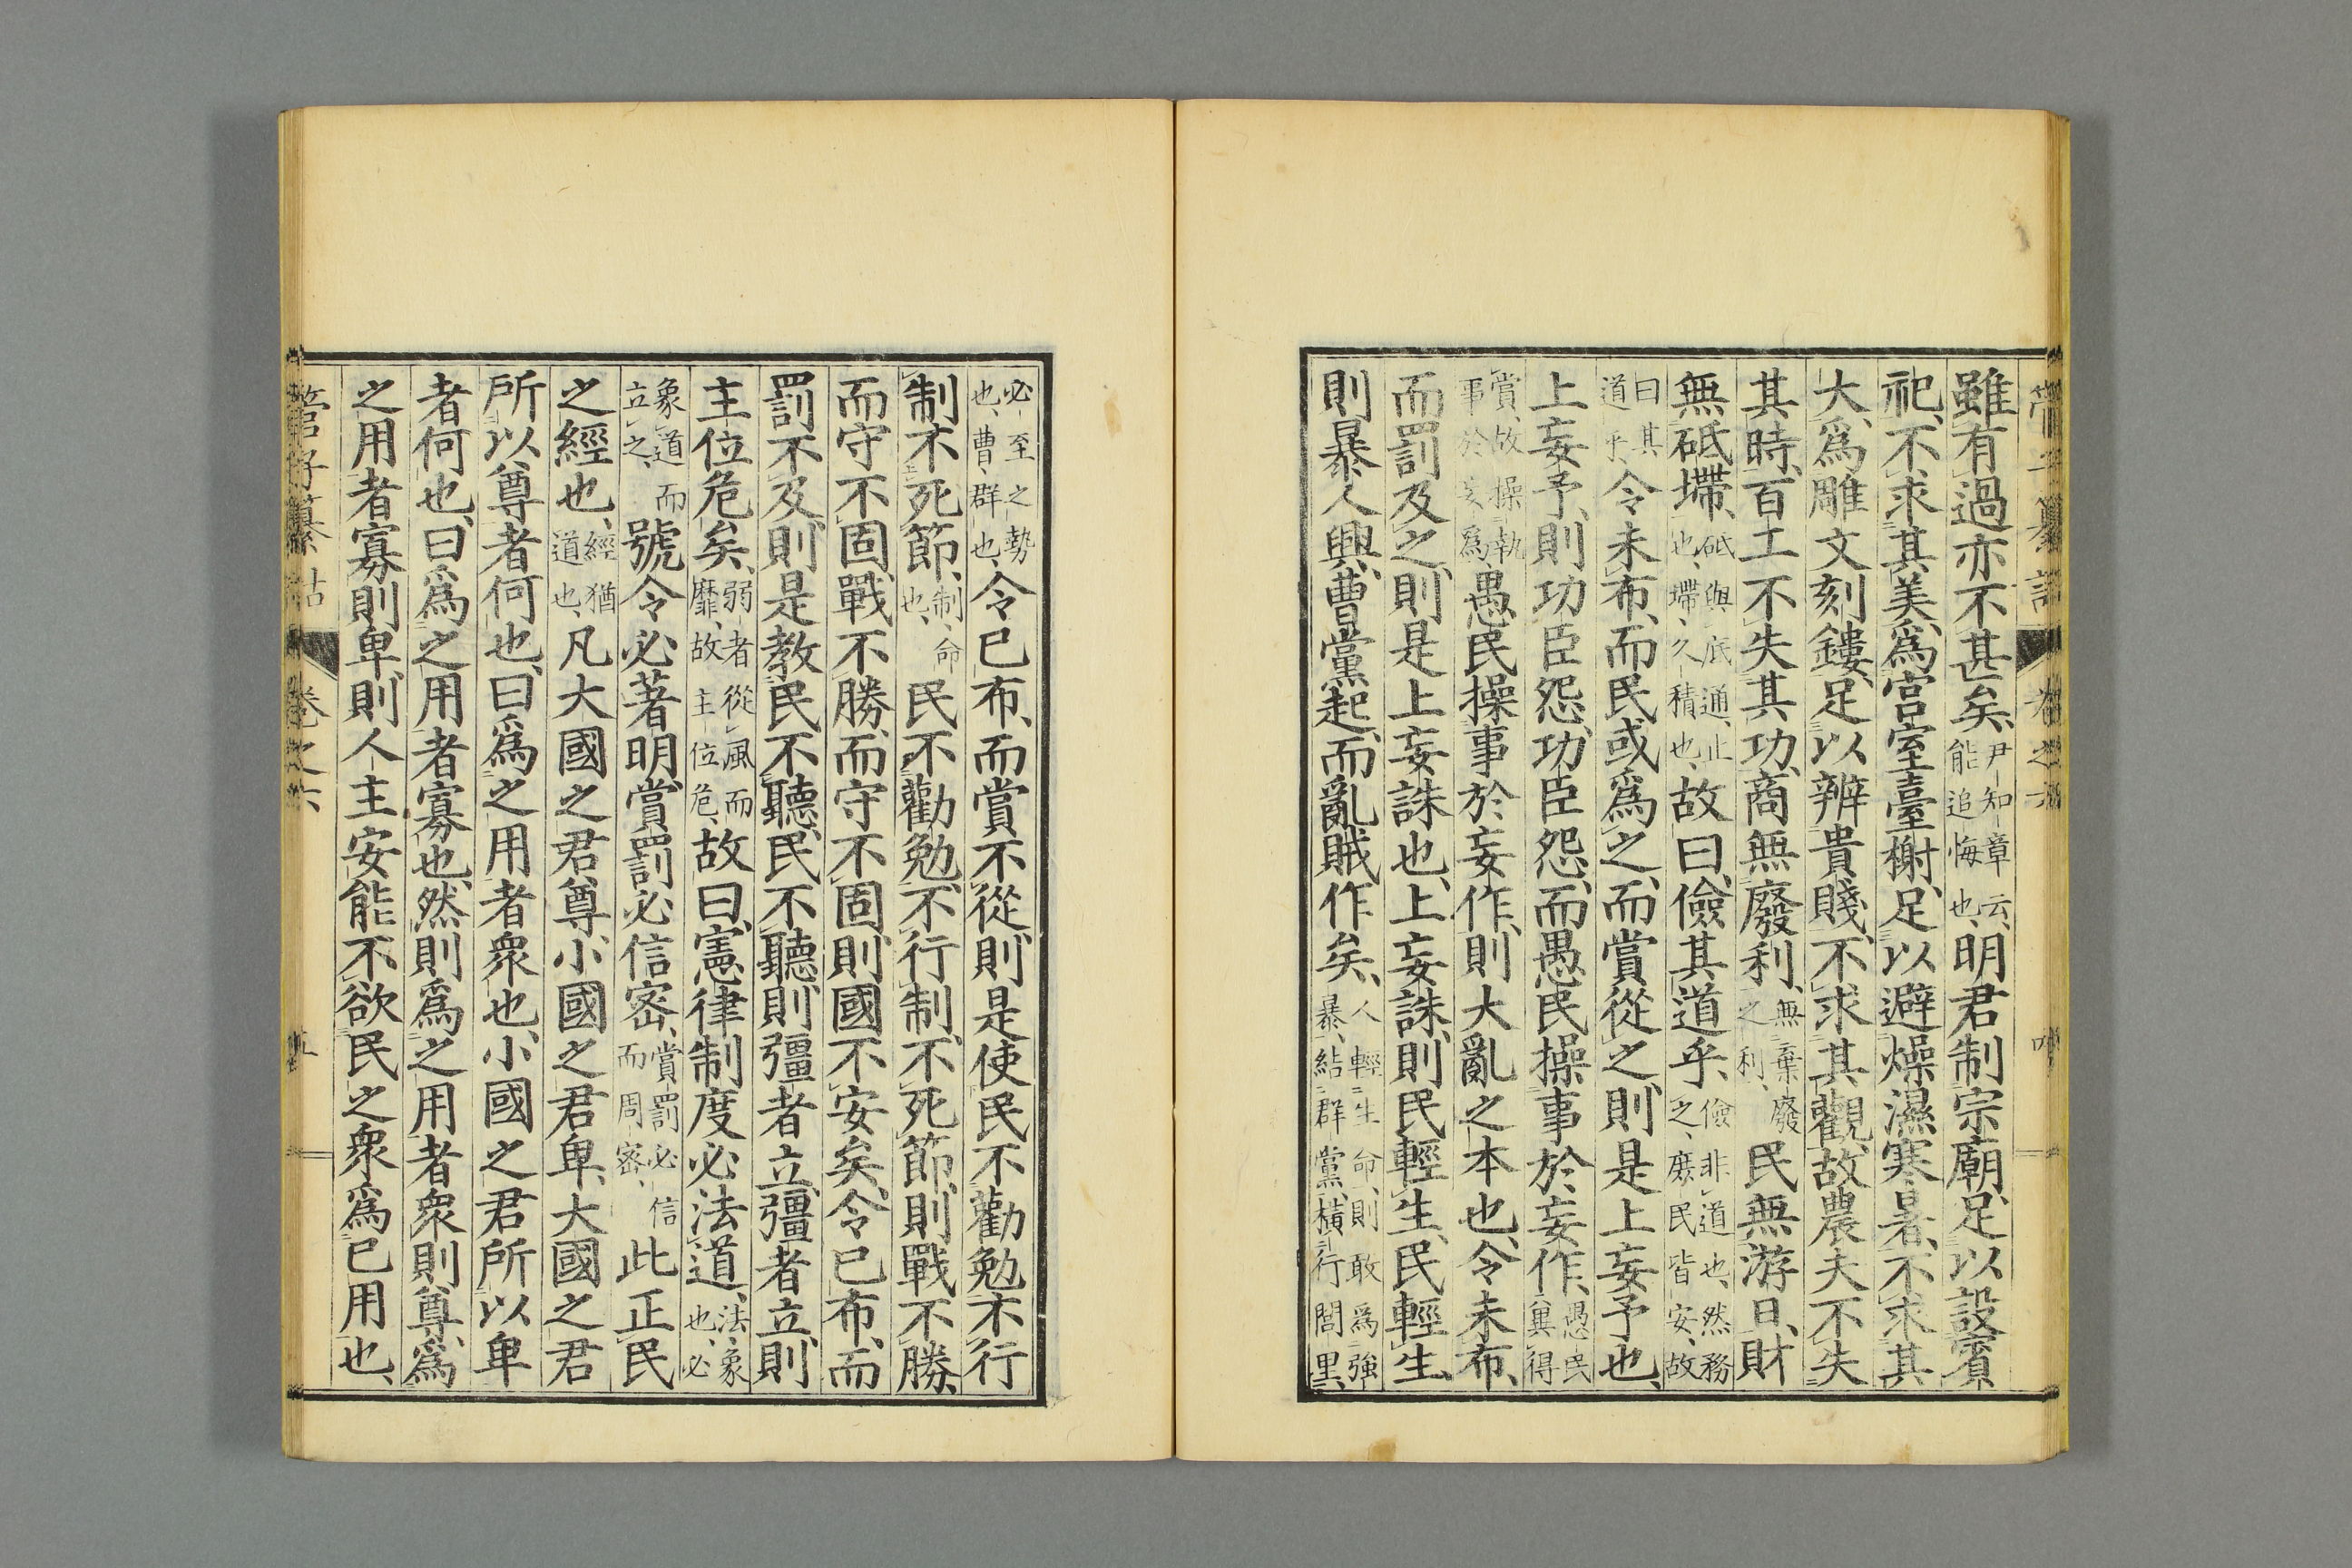 雖有過亦不甚矣、尹知章云、能追悔也、明君制宗廟、足以設賓
祀、不求其美、爲宮室臺榭、足以避燥濕寒暑、不求其
大、爲雕文刻鏤、足以辨貴賤、不求其觀、故農夫不失
其時、百工不失其功、商無廢利、無棄廢之利、民無游日、財
無砥墆、砥與底通、止也、墆、久積也、故曰、儉其道乎、儉非道也、然務之、庶民皆安、故
曰其道乎、令未布、而民或爲之、而賞從之、則是上妄予也、
上妄予、則功臣怨、功臣怨、而愚民操事於妄作、愚民冀得
賞、故操執事於妄爲、愚民操事於妄作、則大亂之本也、令未布、
而罰及之、則是上妄誅也、上妄誅、則民輕生、民輕生、
則暴人興、曹黨起、而亂賊作矣、人輕生命、則敢爲強暴、結群黨、橫行閭里、
必至之勢也、曹、群也、令已布、而賞不從、則是使民不勸勉、不行
制、不死節、制、命也、民不勸勉、不行制、不死節、則戰不勝、
而守不固、戰不勝、而守不固、則國不安矣、令已布、而
罰不及、則是教民不聽、民不聽、則彊者立、彊者立、則
主位危矣、弱者從風而靡、故主位危、故曰、憲律制度必法道、法、象也、必
象道而立之、號令必著明、賞罰必信密、賞罰必信而周密、此正民
之經也、經猶道也、凡大國之君尊、小國之君卑、大國之君
所以尊者何也、曰、爲之用者衆也、小國之君所以卑
者何也、曰、爲之用者寡也、然則爲之用者衆則尊、爲
之用者寡則卑、則人主安能不欲民之衆爲已用也、
管子纂詁 卷之六 五